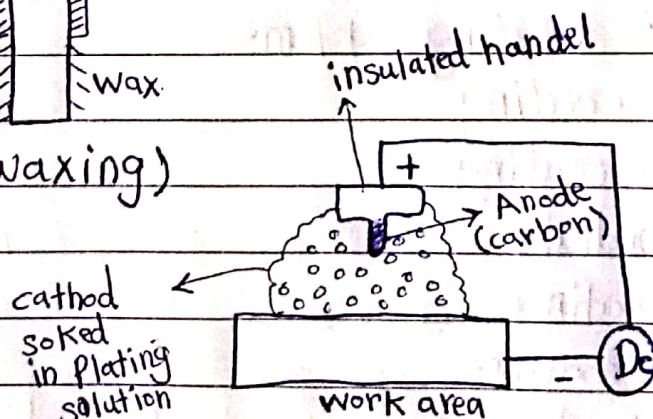 wax.
insulated handel
waxing)
+
Anode
(carbon)
cathod
soked
in Plating
solution
Dc
-
work area